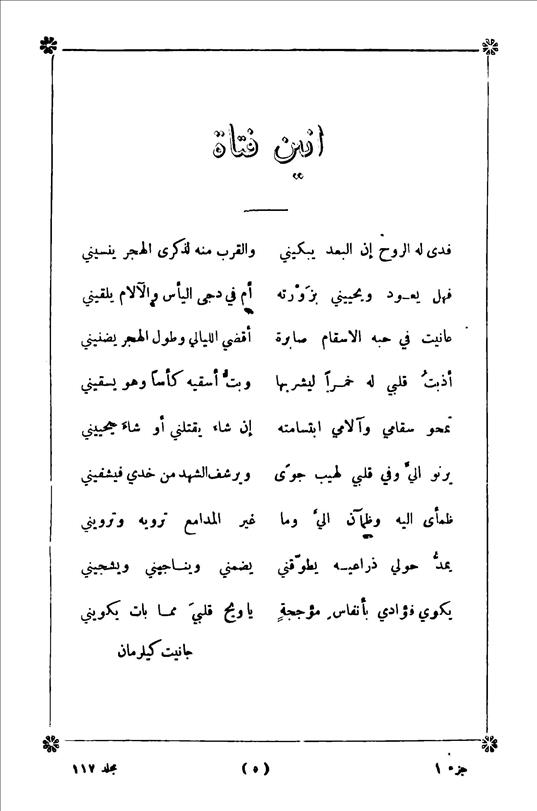 انين فتاة
فدى له الروح إن البعد يبكيني    والقرب منه لذكرى الهجر ينسيني
فهل يعود ويحييني بزَوْرته    أم في دجى اليأس والآلام يلقيني
عانيت في حبه الاسقام صابرة    أقضي الليالي وطول الهجر يضنيني
أذبتُ قلبي له خمراً ليشربها    وبتُّ أسقيه كأساً وهو يسقيني
تمحو سقامي وآلامي ابتسامته    إن شاء يقتلني أو شاءَ يحييني
يرنو اليَّ وفي قلبي لهيب جوًى    ويرشف الشهد من خدي فيشفيني
ظمأى اليه وظمآن اليَّ وما    غير المدامع ترويه وترويني
يمدُّ حولي ذراعيه يطوّقني    يضمني ويناجيني ويشجيني
يكوي فؤادي بأنفاسٍ مؤججةٍ    ياويح قلبيَ مما بات يكويني
جانيت كيلرمان
جزء ١    (٥)    مجلد ١١٧